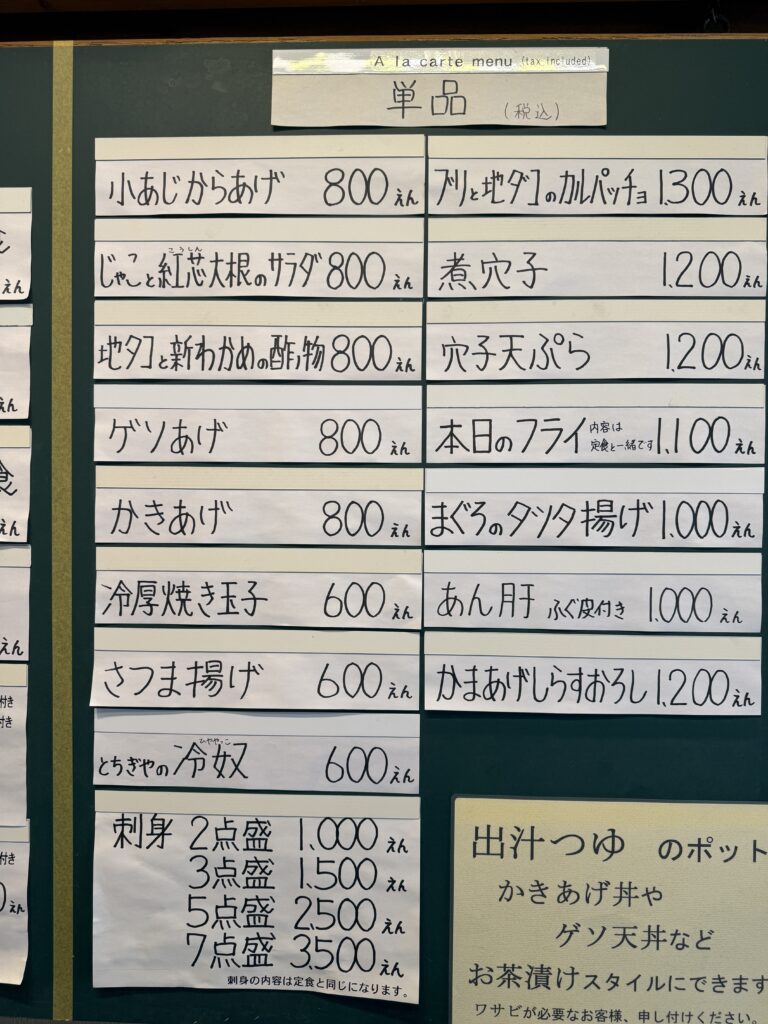 A la carte menu (tax included)
単品 (税込)
小あじからあげ 800えん
じゃこと紅芯大根のサラダ 800えん
こうしん
地タコと新わかめの酢の物 800えん
ゲソあげ 800えん
かきあげ 800えん
冷厚焼き玉子 600えん
さつま揚げ 600えん
とちぎやの冷奴 600えん
ひややっこ
刺身 2点盛 1,000えん
3点盛 1,500えん
5点盛 2,500えん
7点盛 3,500えん
刺身の内容は定食と同じになります。
ブリと地ダコのカルパッチョ 1,300えん
煮穴子 1,200えん
穴子天ぷら 1,200えん
本日のフライ 内容は 1,100えん
定食と一緒です
まぐろのタツタ揚げ 1,000えん
あん肝 ふぐ皮付き 1,000えん
かまあげしらすおろし 1,200えん
出汁つゆ のポット
かきあげ丼や
ゲソ天丼など
お茶漬けスタイルにできます
ワサビが必要なお客様、申し付けください。
えん
えん
食
えん
えん
付き
付き
付き
えん